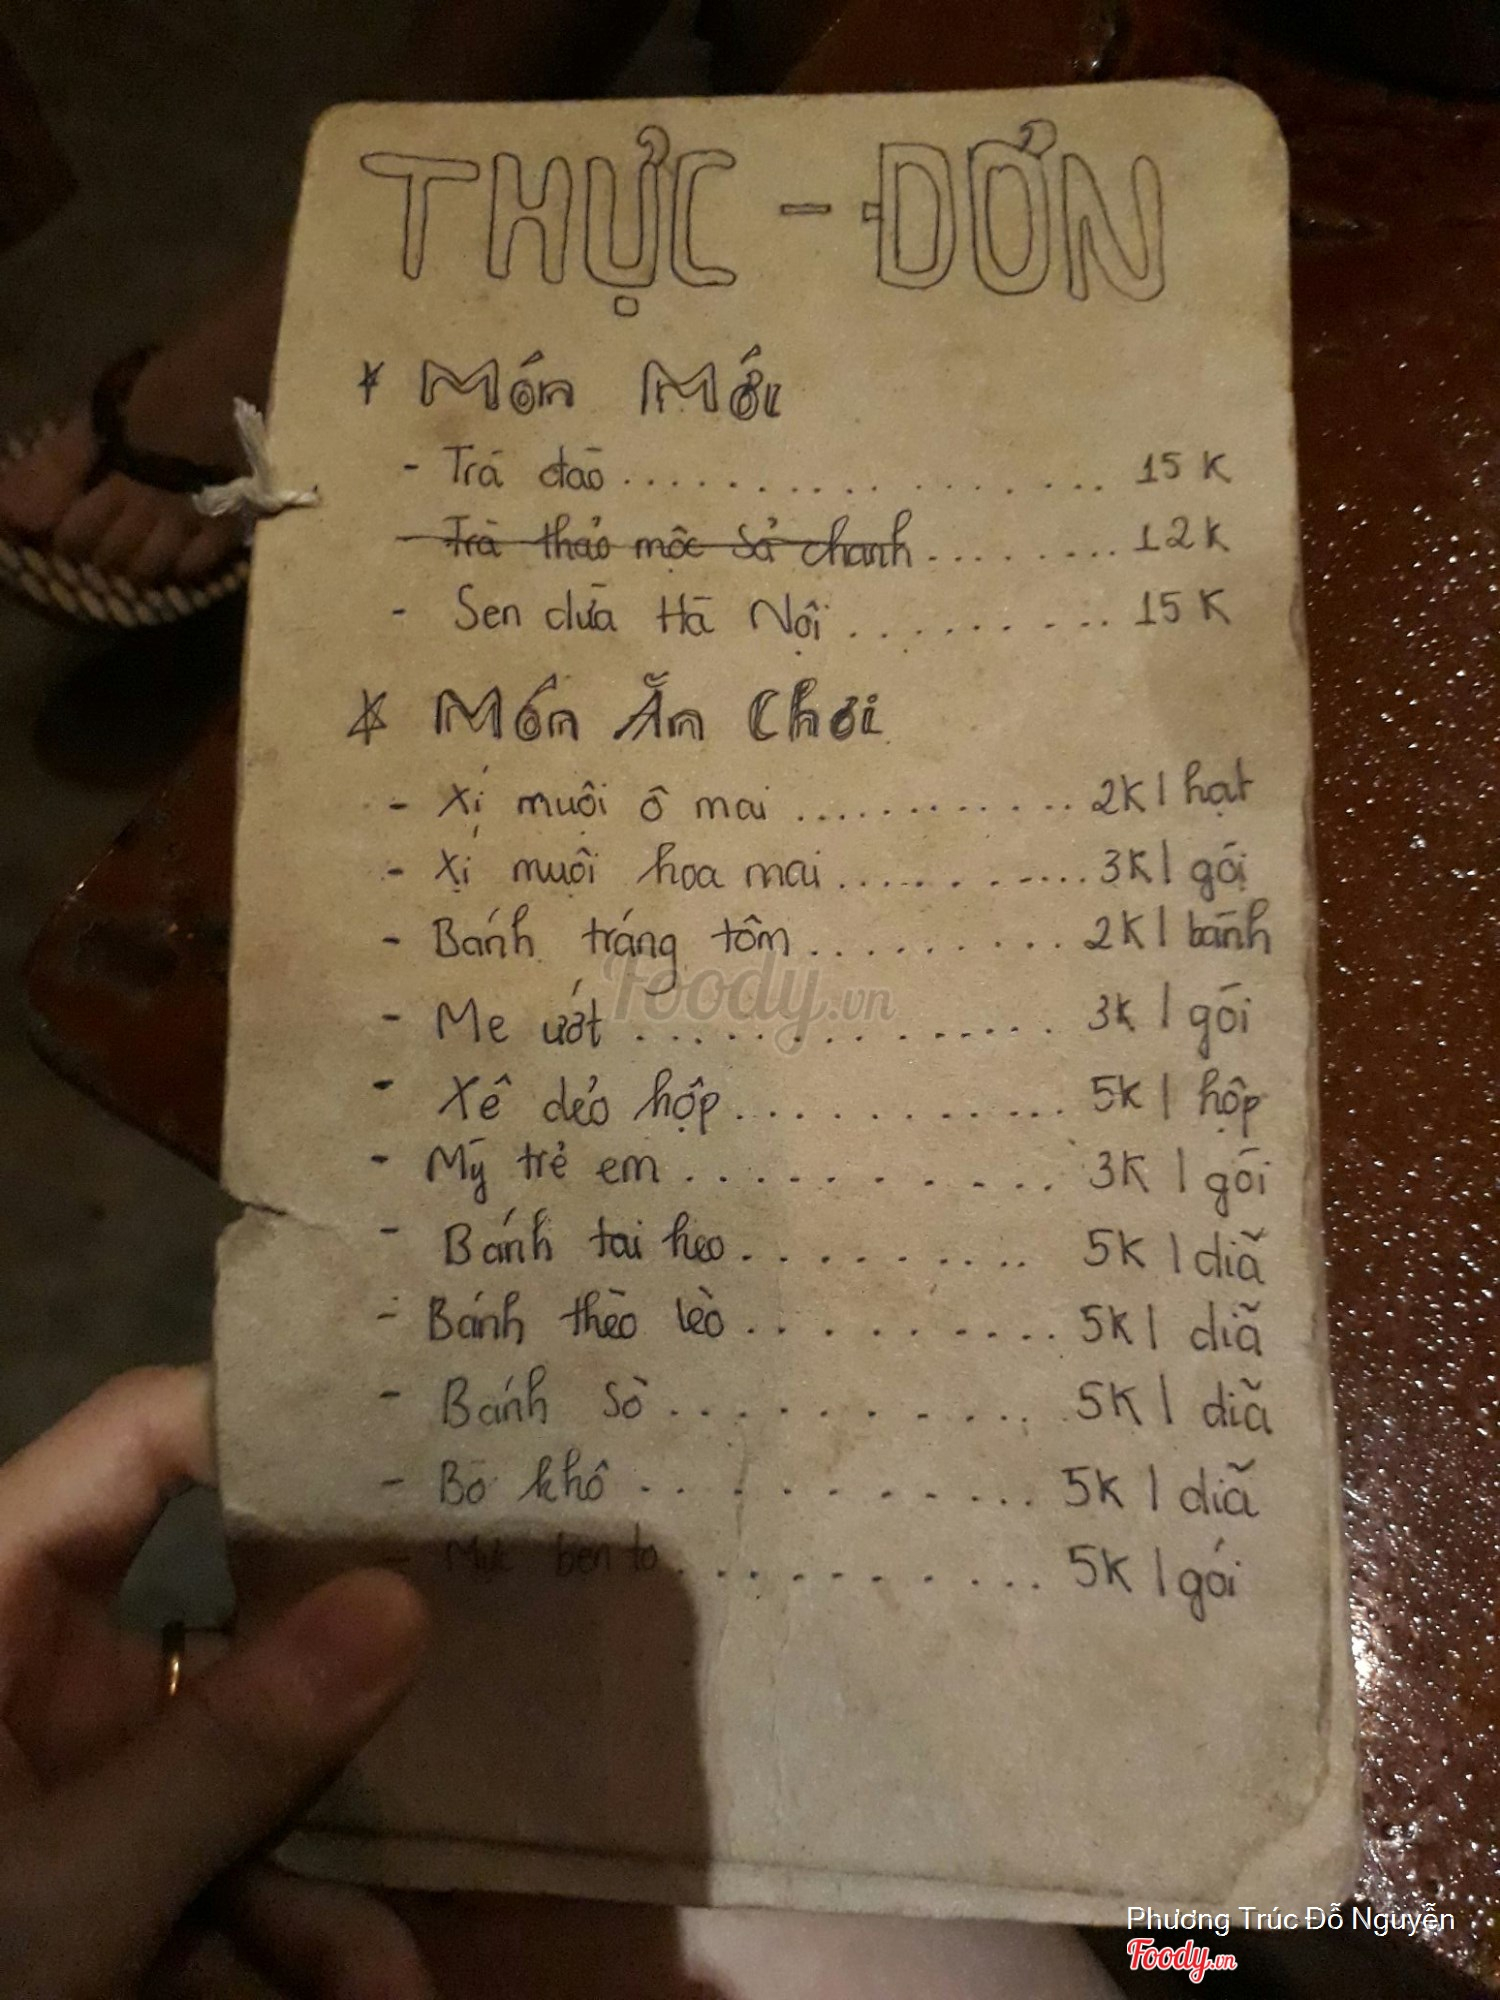 THỰC - ĐƠN
* Món Mới
- Trà đào .................... 15K
- Trà thảo mộc sả chanh ........ 12K
- Sen dừa Hà Nội .......... 15K
* Món Ăn Chơi
- Xí muội ô mai ............ 2K/hạt
- Xí muội hoa mai ........... 3K/gói
- Bánh tráng tôm .......... 2K/bánh
- Me ướt ............... 3K/gói
- Xê dẻo hộp ............. 5K/hộp
- Mỳ trẻ em ........... 3K/gói
- Bánh tai heo .......... 5K/diã
- Bánh thèo lèo .......... 5K/diã
- Bánh sò ........... 5K/diã
- Bò khô ........... 5K/diã
- Mực bento ........... 5K/gói
Foody.vn
Phương Trúc Đỗ Nguyễn
Foody.vn